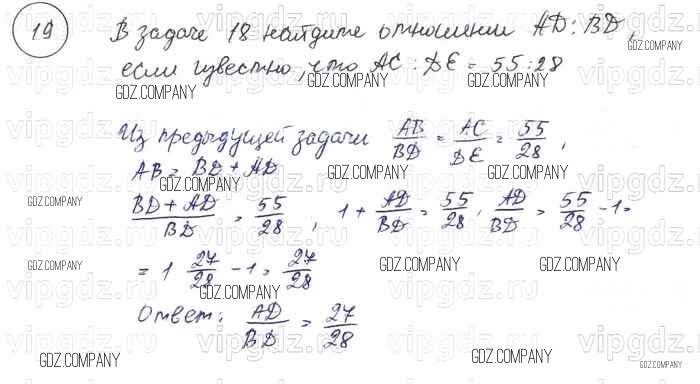 19
В задаче 18 найдите отношении AD:BD,
если известно, что AC:DE = 55:28
Из предыдущей задачи AB/BD = AC/DE = 55/28,
AB = BD + AD
BD + AD/BD = 55/28, 1 + AD/BD = 55/28, AD/BD = 55/28 - 1 =
= 1 27/28 - 1 = 27/28
Ответ: AD/BD = 27/28